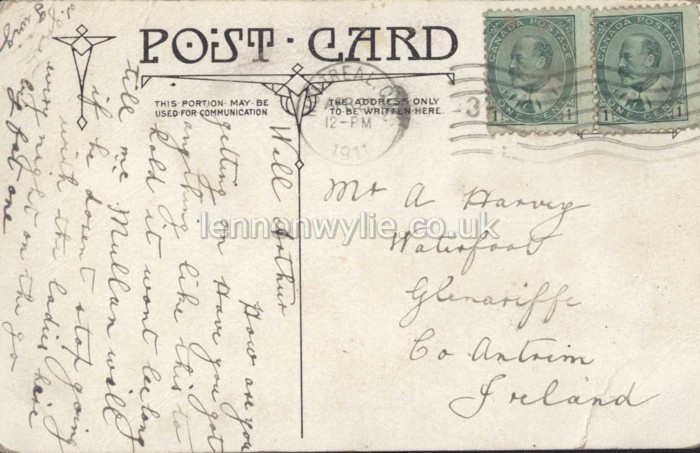 POST CARD
THIS PORTION MAY BE
USED FOR COMMUNICATION
THE ADDRESS ONLY
TO BE WRITTEN HERE
CANADA POSTAGE
1 ONE CENT 1
CANADA POSTAGE
1 ONE CENT 1
12-PM
1911
3
Mr A Harvey
Waterfoot
Glenariffe
Co Antrim
Ireland
Well Arthur
How are you
getting on Have you got
anything like this to
hold it wont be long
till me Mullan will
if he dosent stop going
with the ladies here
at night on the go
a fat one
lennonwylie.co.uk